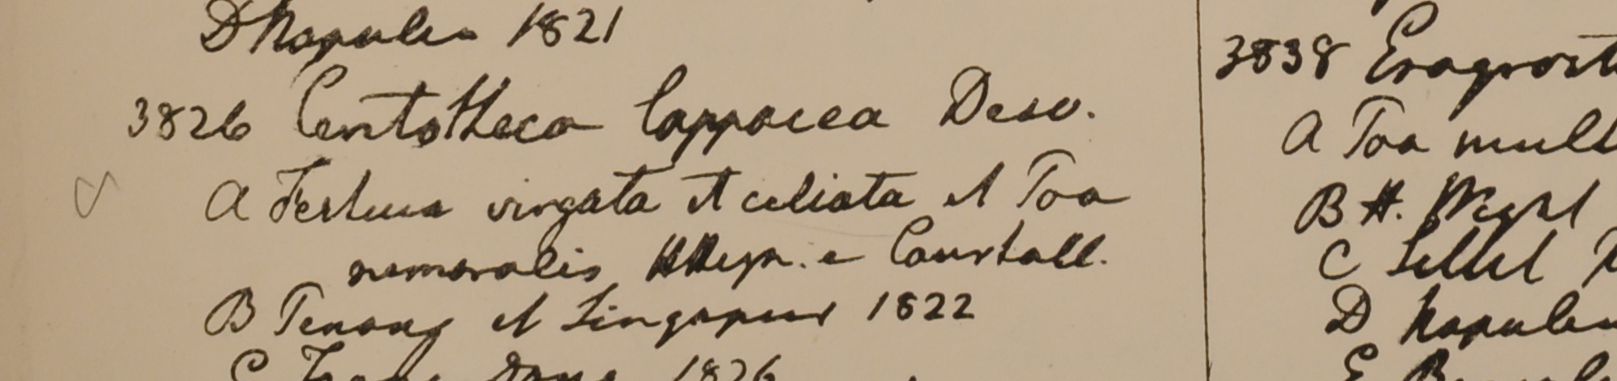 D Napalia 1821
3826 Centotheca lappacea Desv.
A Festuca virgata et ciliata et Poa
nemoralis HHeyn. e Courtall.
B Penang et Singapur 1822
C 1826
3838 Eragrost
A Poa mult
B H. Wight
C Sillet
D Napalia
E